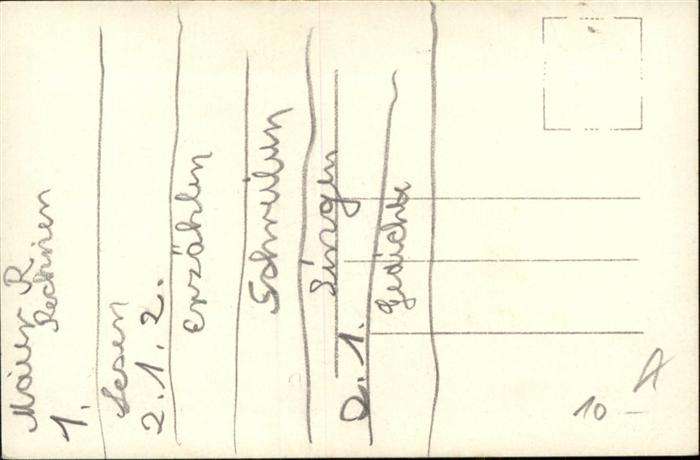 Maier R
Rechnen
1.
Lesen
2. 1. 2.
Erzählen
Schreiben
Singen
2. 1.
Gedichte
10 -
A